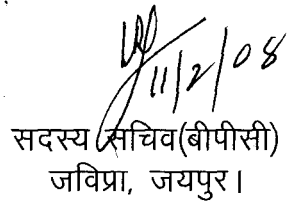 11/2/08
सदस्य सचिव(बीपीसी)
जविप्रा, जयपुर।